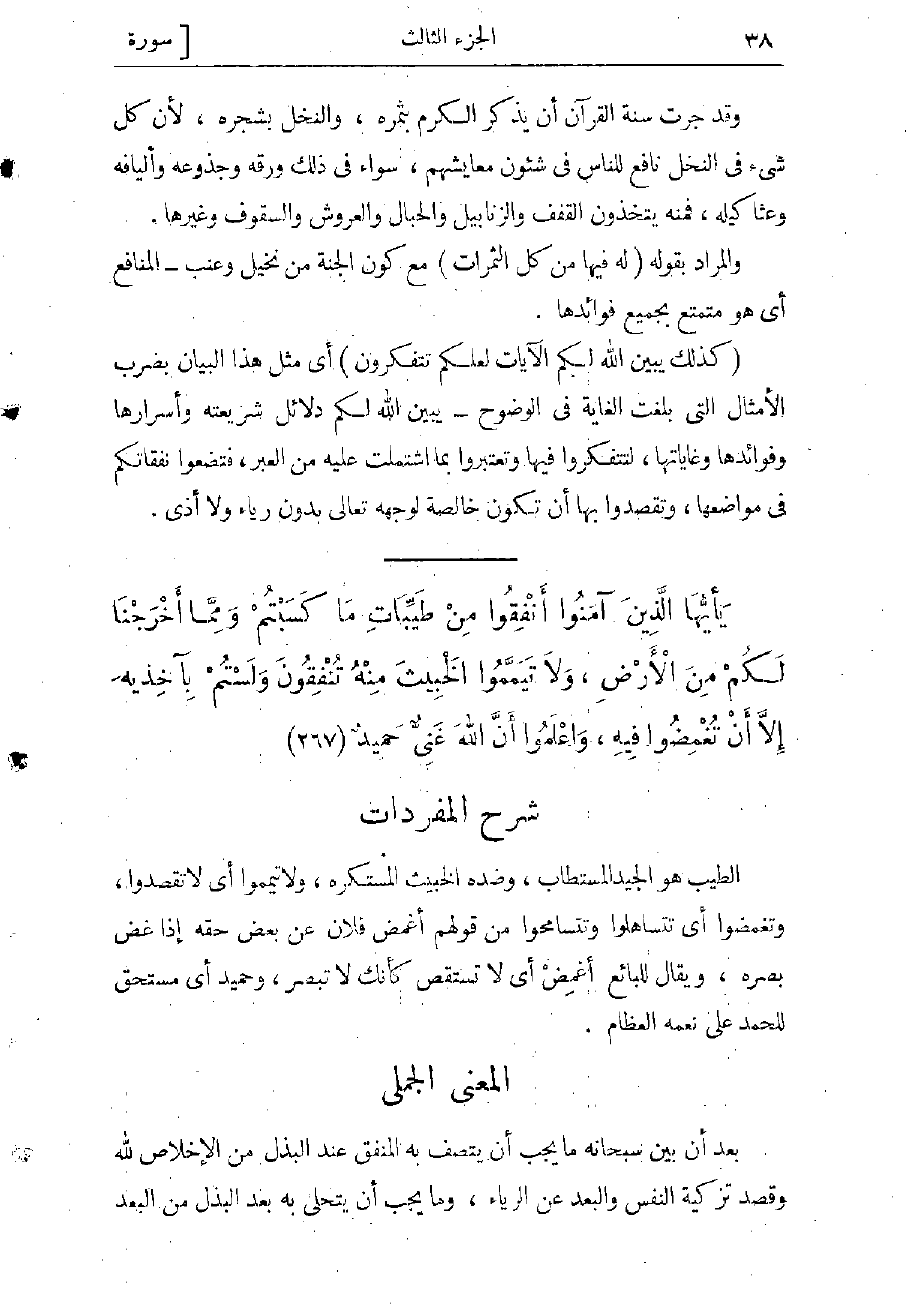 ٣٨ الجزء الثالث [ سورة
وقد جرت سنة القرآن أن يذكر الكرم بثمره ، والنخل بشجره ، لأن كل
شىء فى النخل نافع للناس فى شئون معايشهم ، سواء فى ذلك ورقه وجذوعه وأليافه
وعثاكيله ، فمنه يتخذون القفف والزنابيل والحبال والعروش والسقوف وغيرها .
والمراد بقوله ( له فيها من كل الثمرات ) مع كون الجنة من نخيل وعنب – المنافع
أى هو متمتع بجميع فوائدها .
( كذلك يبين الله لكم الآيات لعلكم تتفكرون ) أى مثل هذا البيان بضرب
الأمثال التى بلغت الغاية فى الوضوح – يبين الله لكم دلائل شريعته وأسرارها
وفوائدها وغاياتها ، لتتفكروا فيها وتعتبروا بما اشتملت عليه من العبر ، فتضعوا نفقاتكم
فى مواضعها ، وتقصدوا بها أن تكون خالصة لوجهه تعالى بدون رياء ولا أذى .
يَأَيُّهَا الَّذِينَ آمَنُوا أَنْفِقُوا مِنْ طَيِّبَاتِ مَا كَسَبْتُمْ وَمِمَّا أَخْرَجْنَا
لَكُمْ مِنَ الْأَرْضِ ، وَلَا تَيَمَّمُوا الْخَبِيثَ مِنْهُ تُنْفِقُونَ وَلَسْتُمْ بِآخِذِيهِ
إِلَّا أَنْ تُغْمِضُوا فِيهِ ، وَاعْلَمُوا أَنَّ اللهَ غَنِىٌّ حَمِيدٌ (٢٦٧)
شرح المفردات
الطيب هو الجيد المستطاب ، وضده الخبيث المستكره ، ولا تيمموا أى لا تقصدوا ،
وتغمضوا أى تتساهلوا وتتسامحوا من قولهم أغمض فلان عن بعض حقه إذا غض
بصره ، ويقال للبائع أغمِضْ أى لا تستقص كأنك لا تبصر ، وحميد أى مستحق
للحمد على نعمه العظام .
المعنى الجملى
بعد أن بين سبحانه ما يجب أن يتصف به المنفق عند البذل من الإخلاص لله
وقصد تزكية النفس والبعد عن الرياء ، وما يجب أن يتحلى به بعد البذل من البعد